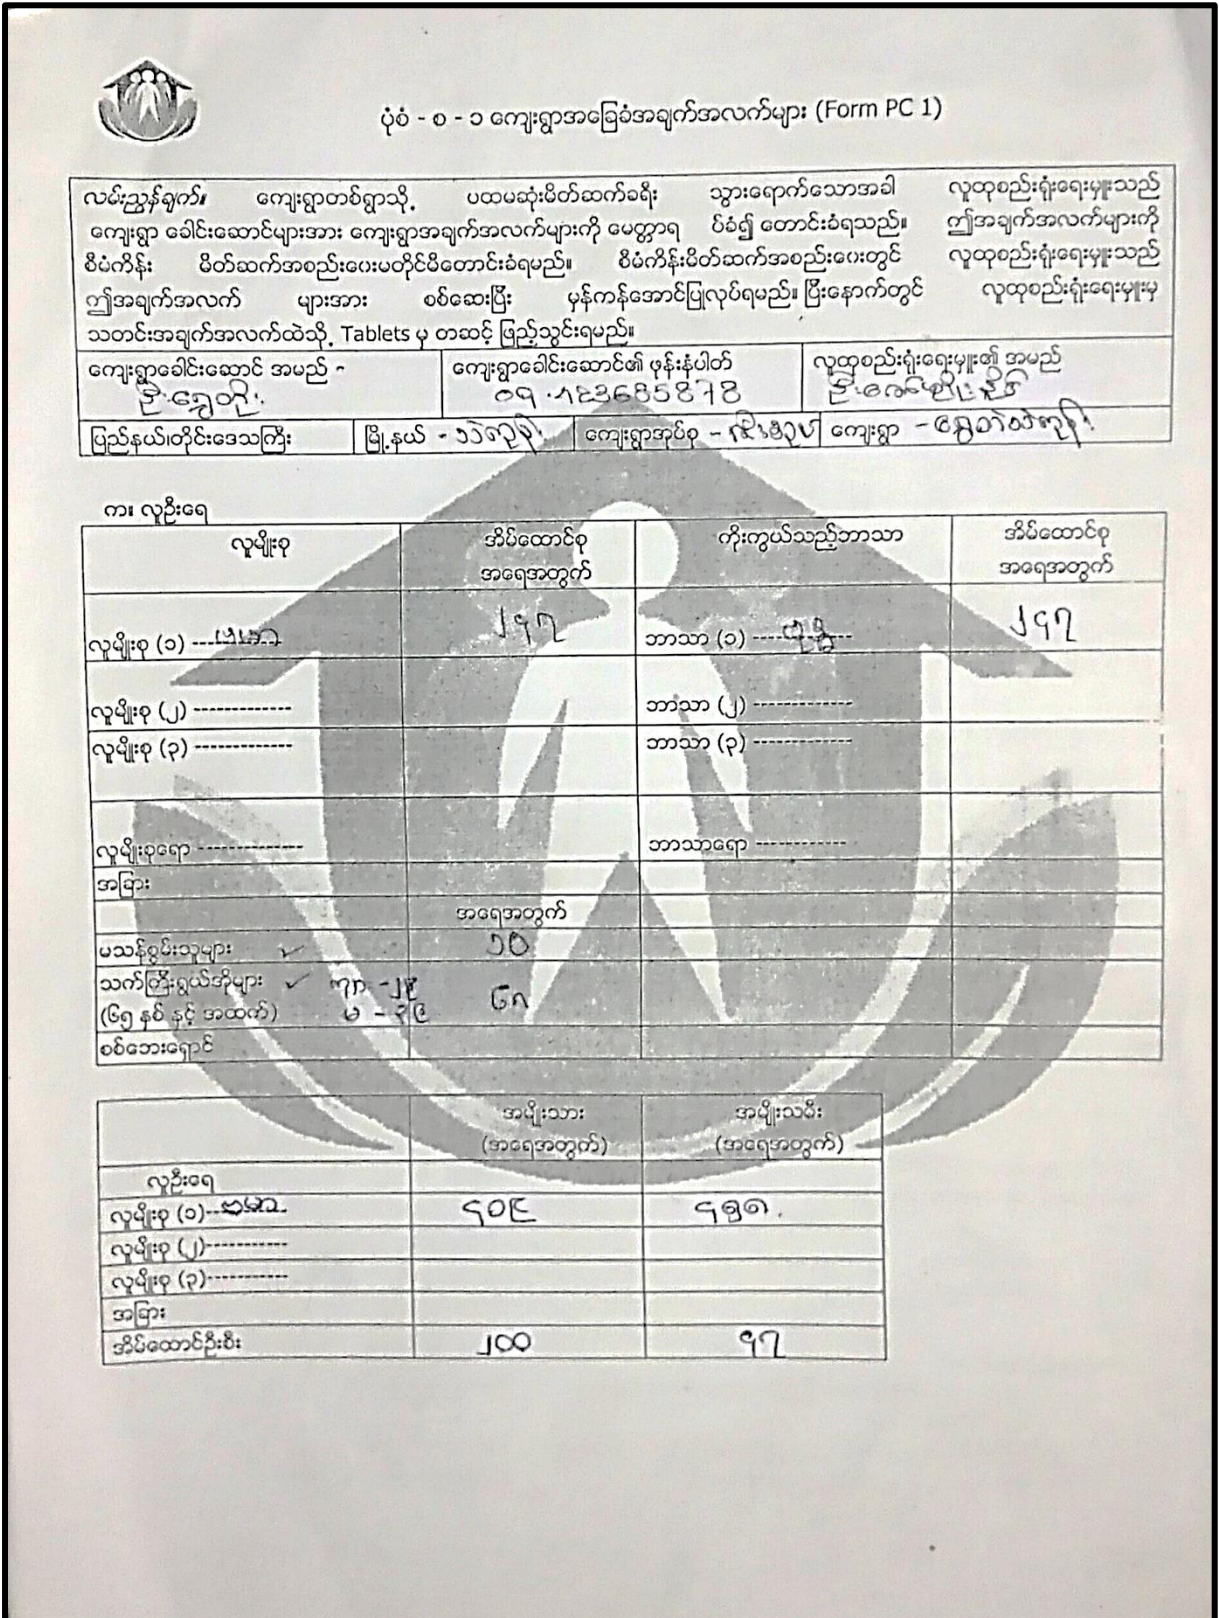 ပုံစံ - စ - ၁ ကျေးရွာအခြေခံအချက်အလက်များ (Form PC 1)
လမ်းညွှန်ချက်။ ကျေးရွာတစ်ရွာသို့ ပထမဆုံးမိတ်ဆက်ခရီး သွားရောက်သောအခါ လူထုစည်းရုံးရေးမှူးသည်
ကျေးရွာ ခေါင်းဆောင်များအား ကျေးရွာအချက်အလက်များကို မေတ္တာရ ပ်ခံ၍ တောင်းခံရသည်။ ဤအချက်အလက်များကို
စီမံကိန်း မိတ်ဆက်အစည်းဝေးမတိုင်မီတောင်းခံရမည်။ စီမံကိန်းမိတ်ဆက်အစည်းဝေးတွင် လူထုစည်းရုံးရေးမှူးသည်
ဤအချက်အလက် များအား စစ်ဆေးပြီး မှန်ကန်အောင်ပြုလုပ်ရမည်။ ပြီးနောက်တွင် လူထုစည်းရုံးရေးမှူးမှ
သတင်းအချက်အလက်ထဲသို့ Tablets မှ တဆင့် ဖြည့်သွင်းရမည်။
ကျေးရွာခေါင်းဆောင် အမည် - ကျေးရွာခေါင်းဆောင်၏ ဖုန်းနံပါတ် လူထုစည်းရုံးရေးမှူး၏ အမည်
ဦးရွှေတိုး 09.123685878
ပြည်နယ်/တိုင်းဒေသကြီး မြို့နယ် - ကျေးရွာအုပ်စု - ကျေးရွာ -
က။ လူဦးရေ
လူမျိုးစု အိမ်ထောင်စု ကိုးကွယ်သည့်ဘာသာ အိမ်ထောင်စု
အရေအတွက် အရေအတွက်
လူမျိုးစု (၁) ---ဗမာ ၂၄၇ ဘာသာ (၁) ----ဗုဒ္ဓ--- ၂၄၇
လူမျိုးစု (၂) ------------- ဘာသာ (၂) -------------
လူမျိုးစု (၃) ------------- ဘာသာ (၃) -------------
လူမျိုးစုရော -------------- ဘာသာရော ------------
အခြား
အရေအတွက်
မသန်စွမ်းသူများ ✓ ၁၀
သက်ကြီးရွယ်အိုများ ✓ ကျား -၂၉ ၆၈
(၆၅ နှစ် နှင့် အထက်) မ - ၃၉
စစ်ဘေးရှောင်
အမျိုးသား အမျိုးသမီး
(အရေအတွက်) (အရေအတွက်)
လူဦးရေ
လူမျိုးစု (၁)--ဗမာ ၄၀၉ ၄၅၈
လူမျိုးစု (၂)-----------
လူမျိုးစု (၃)-----------
အခြား
အိမ်ထောင်ဦးစီး ၂၀၀ ၄၇